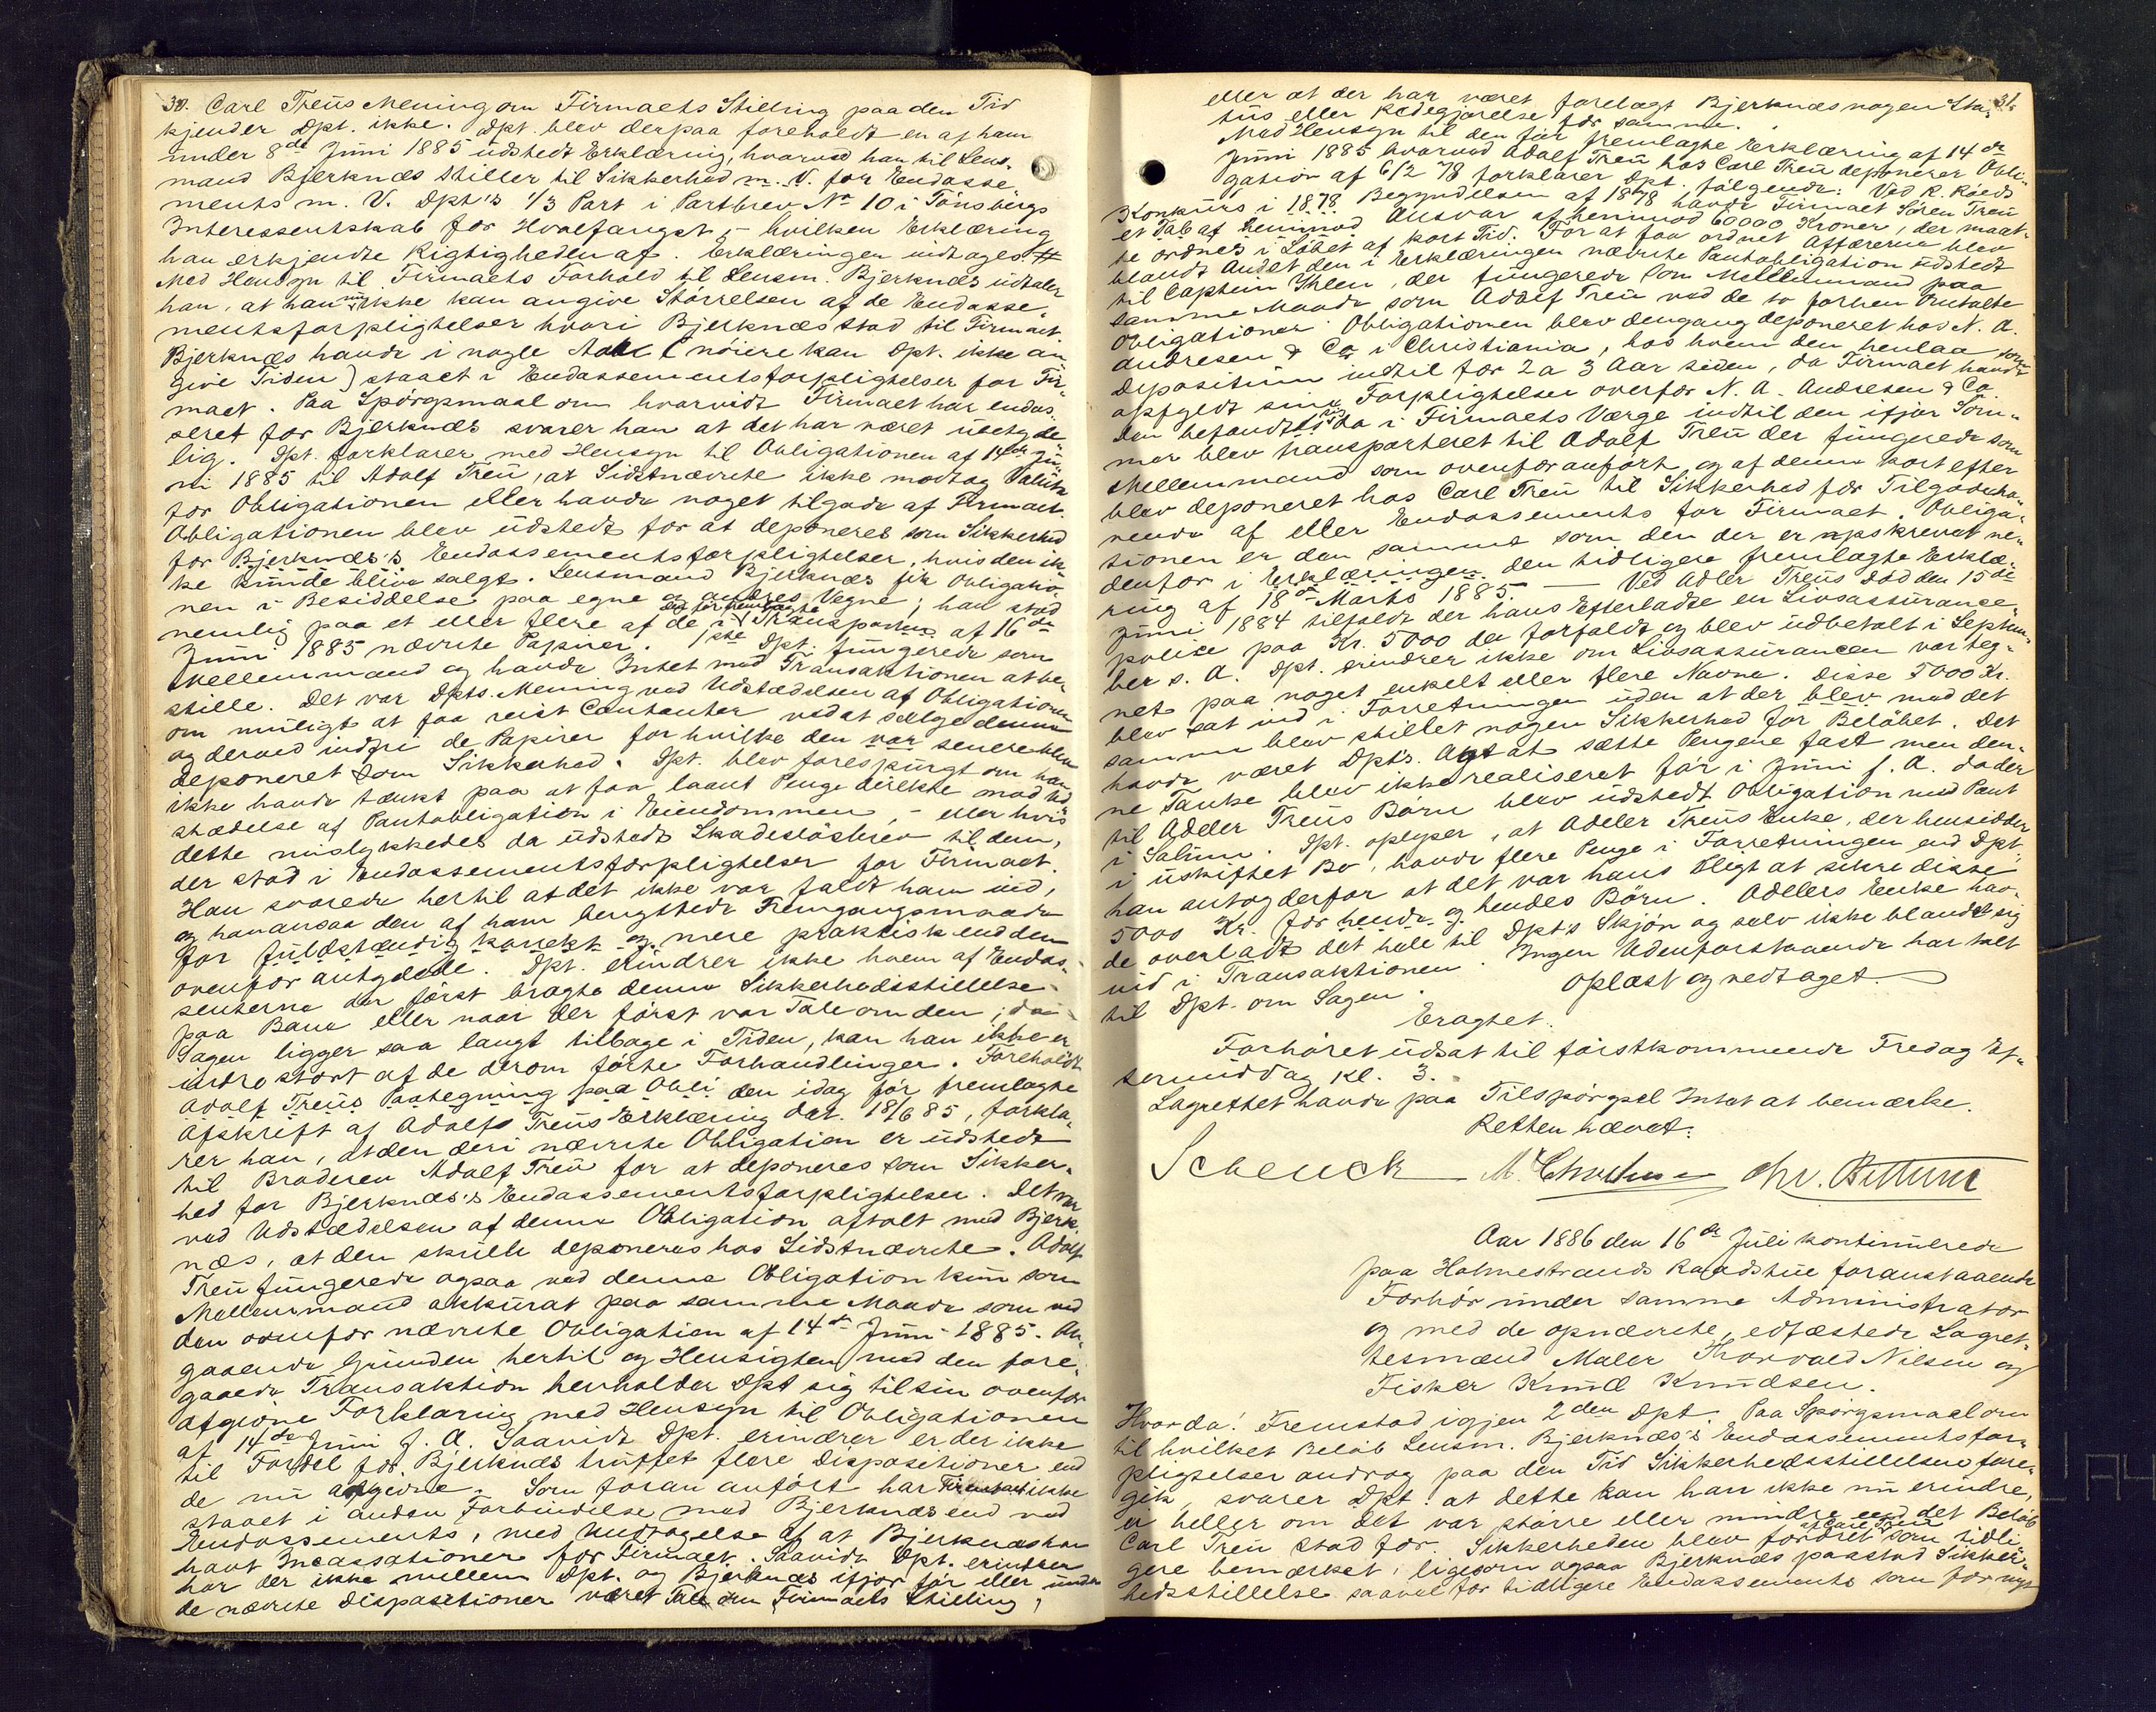 30. Carl Treüs Mening om Firmaets Stilling paa den Tid
kjender Dpt. ikke. Dpt. blev derpaa foreholdt en af ham
under 8de Juni 1885 udstedt Erklæring, hvorved han til Lens-
mand Bjerknæs stiller til Sikkerhed m. V. for Endosse-
ments m. V. Dpt's 1/3 Part i Partbrev No 10 i Tönsbergs
Interessentskab for Hvalfangst, – hvilken Erklæring
han erkjendte Rigtigheden af. Erklæringen indtages #
Med Hensyn til Firmaets Forhold til Lensm. Bjerknæs udtaler
han, at han nu ikke kan angive Störrelsen af de Endosse-
mentsforpligtelser hvori Bjerknæs stod til Firmaet.
Bjerknæs havde i nogle Aar (nöiere kan Dpt. ikke an
give Tiden) staaet i Endossementsforpligtelser for Fir-
maet. Paa Spörgsmaal om hvorvidt Firmaet har endos-
seret for Bjerknæs svarer han at det har været übetyde
lig. Dpt. forklarer med Hensyn til Obligationen af 14de Ju-
ni 1885 til Adolf Treü, at Sidstnævnte ikke modtog Valuta
for Obligationen eller havde noget tilgode af Firmaet.
Obligationen blev üdstedt for at deponeres som Sikkerhed
for Bjerknæs's Endossementsforpligtelser, hvis den ik
ke künde blive solgt. Lensmand Bjerknæs fik Obligatio-
nen i Besiddelse paa egne og andres Vegne; han stod
nemlig paa et eller flere af de i den fremlagte Transporten af 16de
Juni 1885 nævnte Papirer. 1ste Dpt. fungerede som
Mellemmand og havde Intet med Transaktionen at be-
stille. Det var Dpts. Mening ved Udstædelsen af Obligationen
om muligt at faa reist Contanter ved at sælge denne
og derved indfri de Papirer for hvilke den var senere blev
deponeret som Sikkerhed. Dpt. blev forespurgt om han
ikke havde tænkt paa at faa laant Penge direkte mod Ud
stædelse af Pantobligation i Eiendommen, – eller hvis
dette mislykkedes da üdstede Skadeslösbrev til dem,
der stod i Endossementsforpligtelser for Firmaet.
Han svarede hertil at det ikke var faldt ham ind,
og han ansaa den af ham benyttede Fremgangsmaade
for füldstændig korrekt og mere praktisk end den
ovenfor antydede. Dpt. erindrer ikke hvem af Endos-
senterne der först bragte denne Sikkerhedsstillelse
paa Bane eller naar der först var Tale om den; da
Sagen ligger saa langt tilbage i Tiden, kan han ikke er
indre stort af de derom förte Forhandlinger. Foreholdt
Adolf Treüs Paategning paa Obli den idag för fremlagte
Afskrift af Adolfs Treüs Erklæring dat. 18/6 85, forkla-
rer han, at den deri nævnte Obligation er üdstedt
til Broderen Adolf Treü for at deponeres som Sikker-
hed for Bjerknæs's Endossementsforpligtelser. Det var
ved Udstædelsen af denne Obligation aftalt med Bjerk
næs, at den skulle deponeres hos Sidstnævnte. Adolf
Treü fungerede ogsaa ved denne Obligation kun som
Mellemmand akkürat paa samme Maade som ved
den ovenfor nævnte Obligation af 14de Juni 1885. An-
gaaende Grunden hertil og Hensigten med den fore-
gaaede Transaktion henholder Dpt sig til sin ovenfor
afgivne Forklaring med Hensyn til Obligationen
af 14de Juni f. A. Saavidt Dpt. erindrer er der ikke
til Fordel for Bjerknæs truffet flere Dispositioner end
de nu afgivne. Som foran anfört har Firmaet ikke
staaet i anden Forbindelse med Bjerknæs end ved
Endossements, med Undtagelse af at Bjerknæs har
havt Incassationer for Firmaet. Saavidt Dpt. erindrer
har der ikke mellem Dpt. og Bjerknæs ifjor för eller under
de nævnte Dispositioner været Tale om Firmaets Stilling,
31.
eller at der har været forelagt Bjerknæs nogen Sta-
tus eller Redegjörelse for samme.
Med Hensyn til den för fremlagte Erklæring af 14de
Juni 1885 hvorved Adolf Treü hos Carl Treü deponerer Obli-
gation af 6/2 78 forklarer Dpt. fölgende: Ved R. Röeds
Konkurs i 1878 Begyndelsen af 1878 havde Firmaet Sören Treü
et Tab af henimod Ansvar af henimod 60000 Kroner, der maat-
te ordnes i Löbet af kort Tid. For at faa ordnet Affærerne blev
blandt Andet den i Erklæringen nævnte Pantobligation üdstedt
til Captein Ihlen, der fungerede som Mellemmand paa
samme Maade som Adolf Treü ved de to forhen omtalte
Obligationer. Obligationen blev dengang deponeret hos N. A.
Andresen & Co i Christiania, hos hvem den henlaa som
Depositum indtil for 2 a 3 Aar siden, da Firmaet havde
opfyldt sine Forpligtelser overfor N. A. Andresen & Co.
Den befandt sig da i Firmaets Værge indtil den ifjor Som-
mer blev transporteret til Adolf Treü der fungerede som
Mellemmand som ovenfor anfört og af denne kort efter
blev deponeret hos Carl Treü til Sikkerhed for Tilgodeha-
vende af eller Endossements for Firmaet. Obliga-
tionen er den samme som den der er afskrevet ne-
denfor i Erklæringen den tidligere fremlagte Erklæ-
ring af 18de Marts 1885. — Ved Adler Treüs död den 15de
Juni 1884 tilfaldt der hans Efterladte en Livsassurance-
police paa Kr. 5000 der forfaldt og blev üdbetalt i Septem-
ber s. A. Dpt. erindrer ikke om Livsassurancen var teg-
net paa noget enkelt eller flere Navne. Disse 5000 Kr.
blev sat ind i Forretningen uden at der blev med det
samme blev stillet nogen Sikkerhed for Belöbet. Det
havde været Dpt's. Agt at sætte Pengene fast men den-
ne Tanke blev ikke realiseret för i Juni f. A. da der
til Adeler Treüs Börn blev üdstedt Obligation med Pant
i Salinen. Dpt. oplyser, at Adeler Treüs Enke, der hensidder
i üskiftet Bo, havde flere Penge i Forretningen end Dpt;
han antog derfor at det var hans Pligt at sikre disse
5000 Kr. for hende og hendes Börn. Adelers Enke hav-
de overladt det hele til Dpt's Skjön og selv ikke blandet sig
ind i Transaktionen. Ingen Udenforstaaende har talt
til Dpt. om Sagen. Oplæst og vedtaget.
Eragtet:
Forhöret üdsat til förstkommende Fredag Ef-
termiddag Kl. 3.
Lagrettet havde paa Tilspörgsel Intet at bemærke.
Retten hævet.
Schenck
Aar 1886 den 16de Juli kontinuerede
paa Holmestrands Raadstue foranstaaende
Forhör ünder samme Administrator
og med de opnævnte, edfæstede Lagret-
tesmænd Maler Thorvald Nilsen og
Fisker Knud Knudsen.
Hvorda: Fremstod igjen 2den Dpt. Paa Spörgsmaal om
til hvilket Belöb Lensm. Bjerknæs's Endossementsfor-
pligtelser androg paa den Tid Sikkerhedsstillelsen fore-
gik, svarer Dpt. at dette kan han ikke nu erindre,
ei heller om det var större eller mindre end det Belöb
Carl Treü stod for. Sikkerheden blev fordret af Carl Treü som tidli-
gere bemærket, ligesom ogsaa Bjerknæs paastod Sikker-
hedsstillelse saavel for tidligere Endossements som for nye